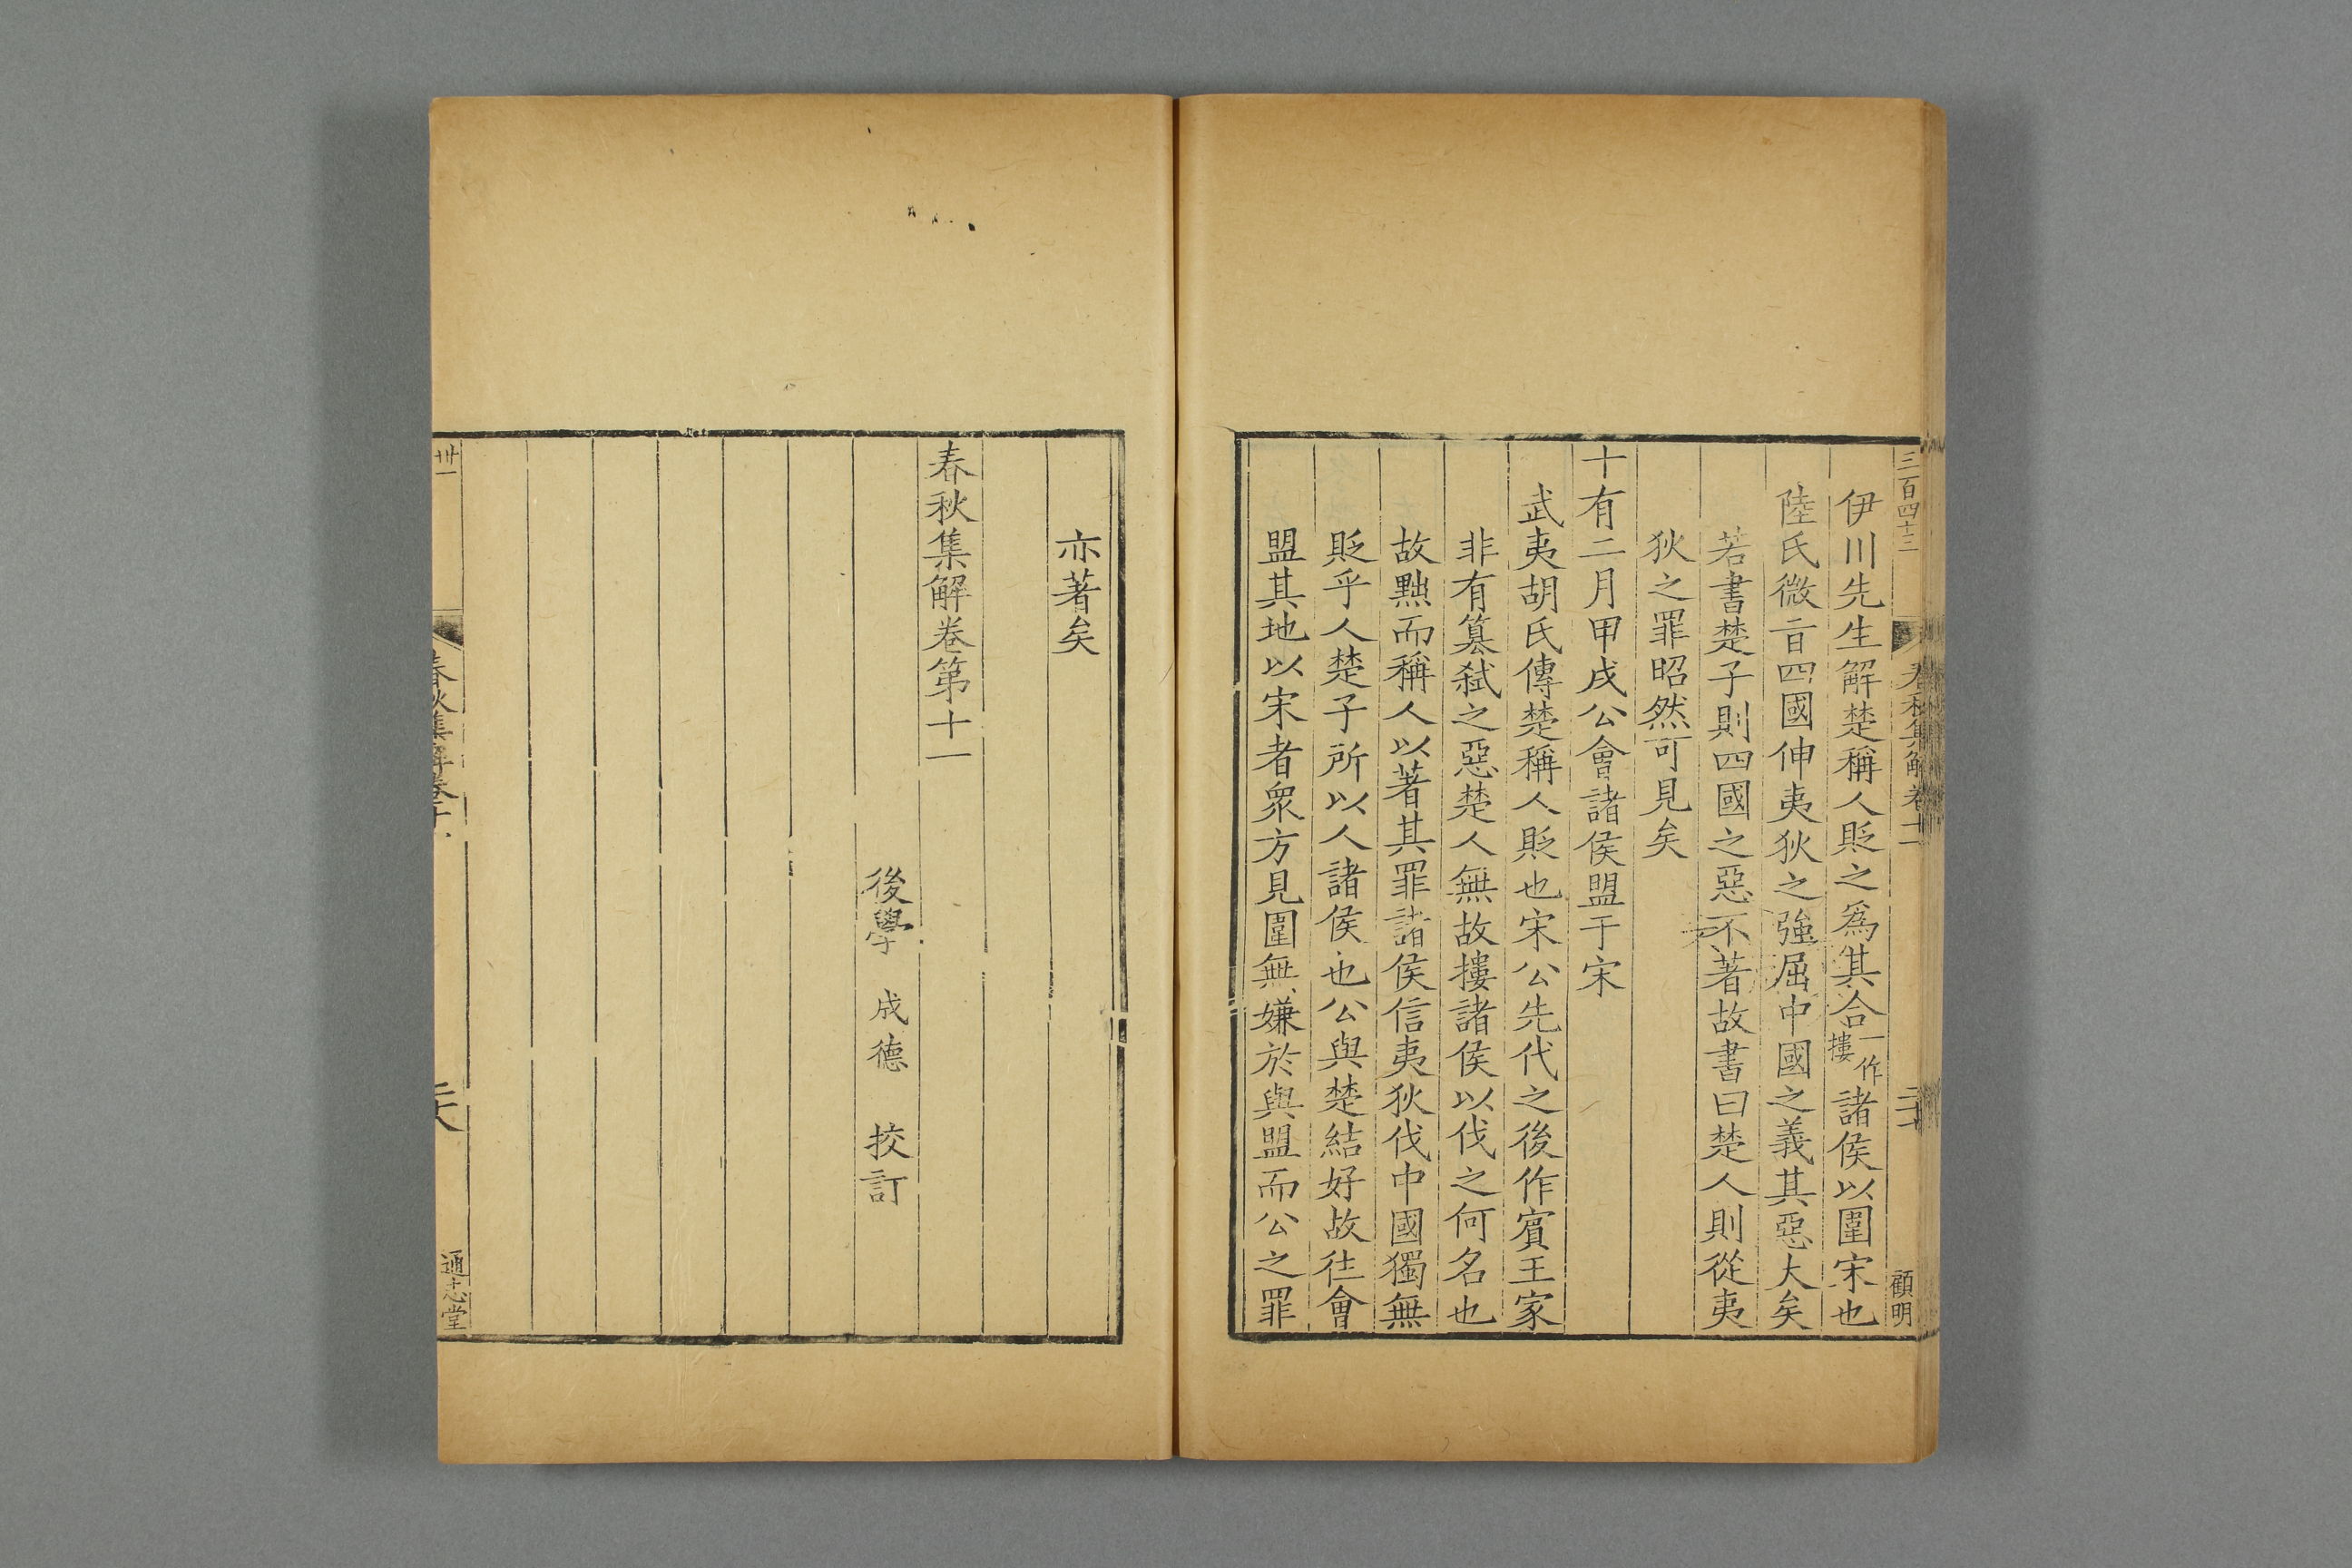 三百四十三
春秋集解卷十一
二十
顧明
伊川先生解楚稱人貶之爲其合一作摟諸侯以圍宋也
陸氏微㫖四國伸夷狄之強屈中國之義其惡大矣
若書楚子則四國之惡不著故書曰楚人則從夷
狄之罪昭然可見矣
十有二月甲戌公會諸侯盟于宋
武夷胡氏傳楚稱人貶也宋公先代之後作賓王家
非有篡弑之惡楚人無故摟諸侯以伐之何名也
故黜而稱人以著其罪諸侯信夷狄伐中國獨無
貶乎人楚子所以人諸侯也公與楚結好故往會
盟其地以宋者衆方見圍無嫌於與盟而公之罪
亦著矣
春秋集解卷第十一
後學 成德 挍訂
卅一
春秋集解卷十一
通志堂